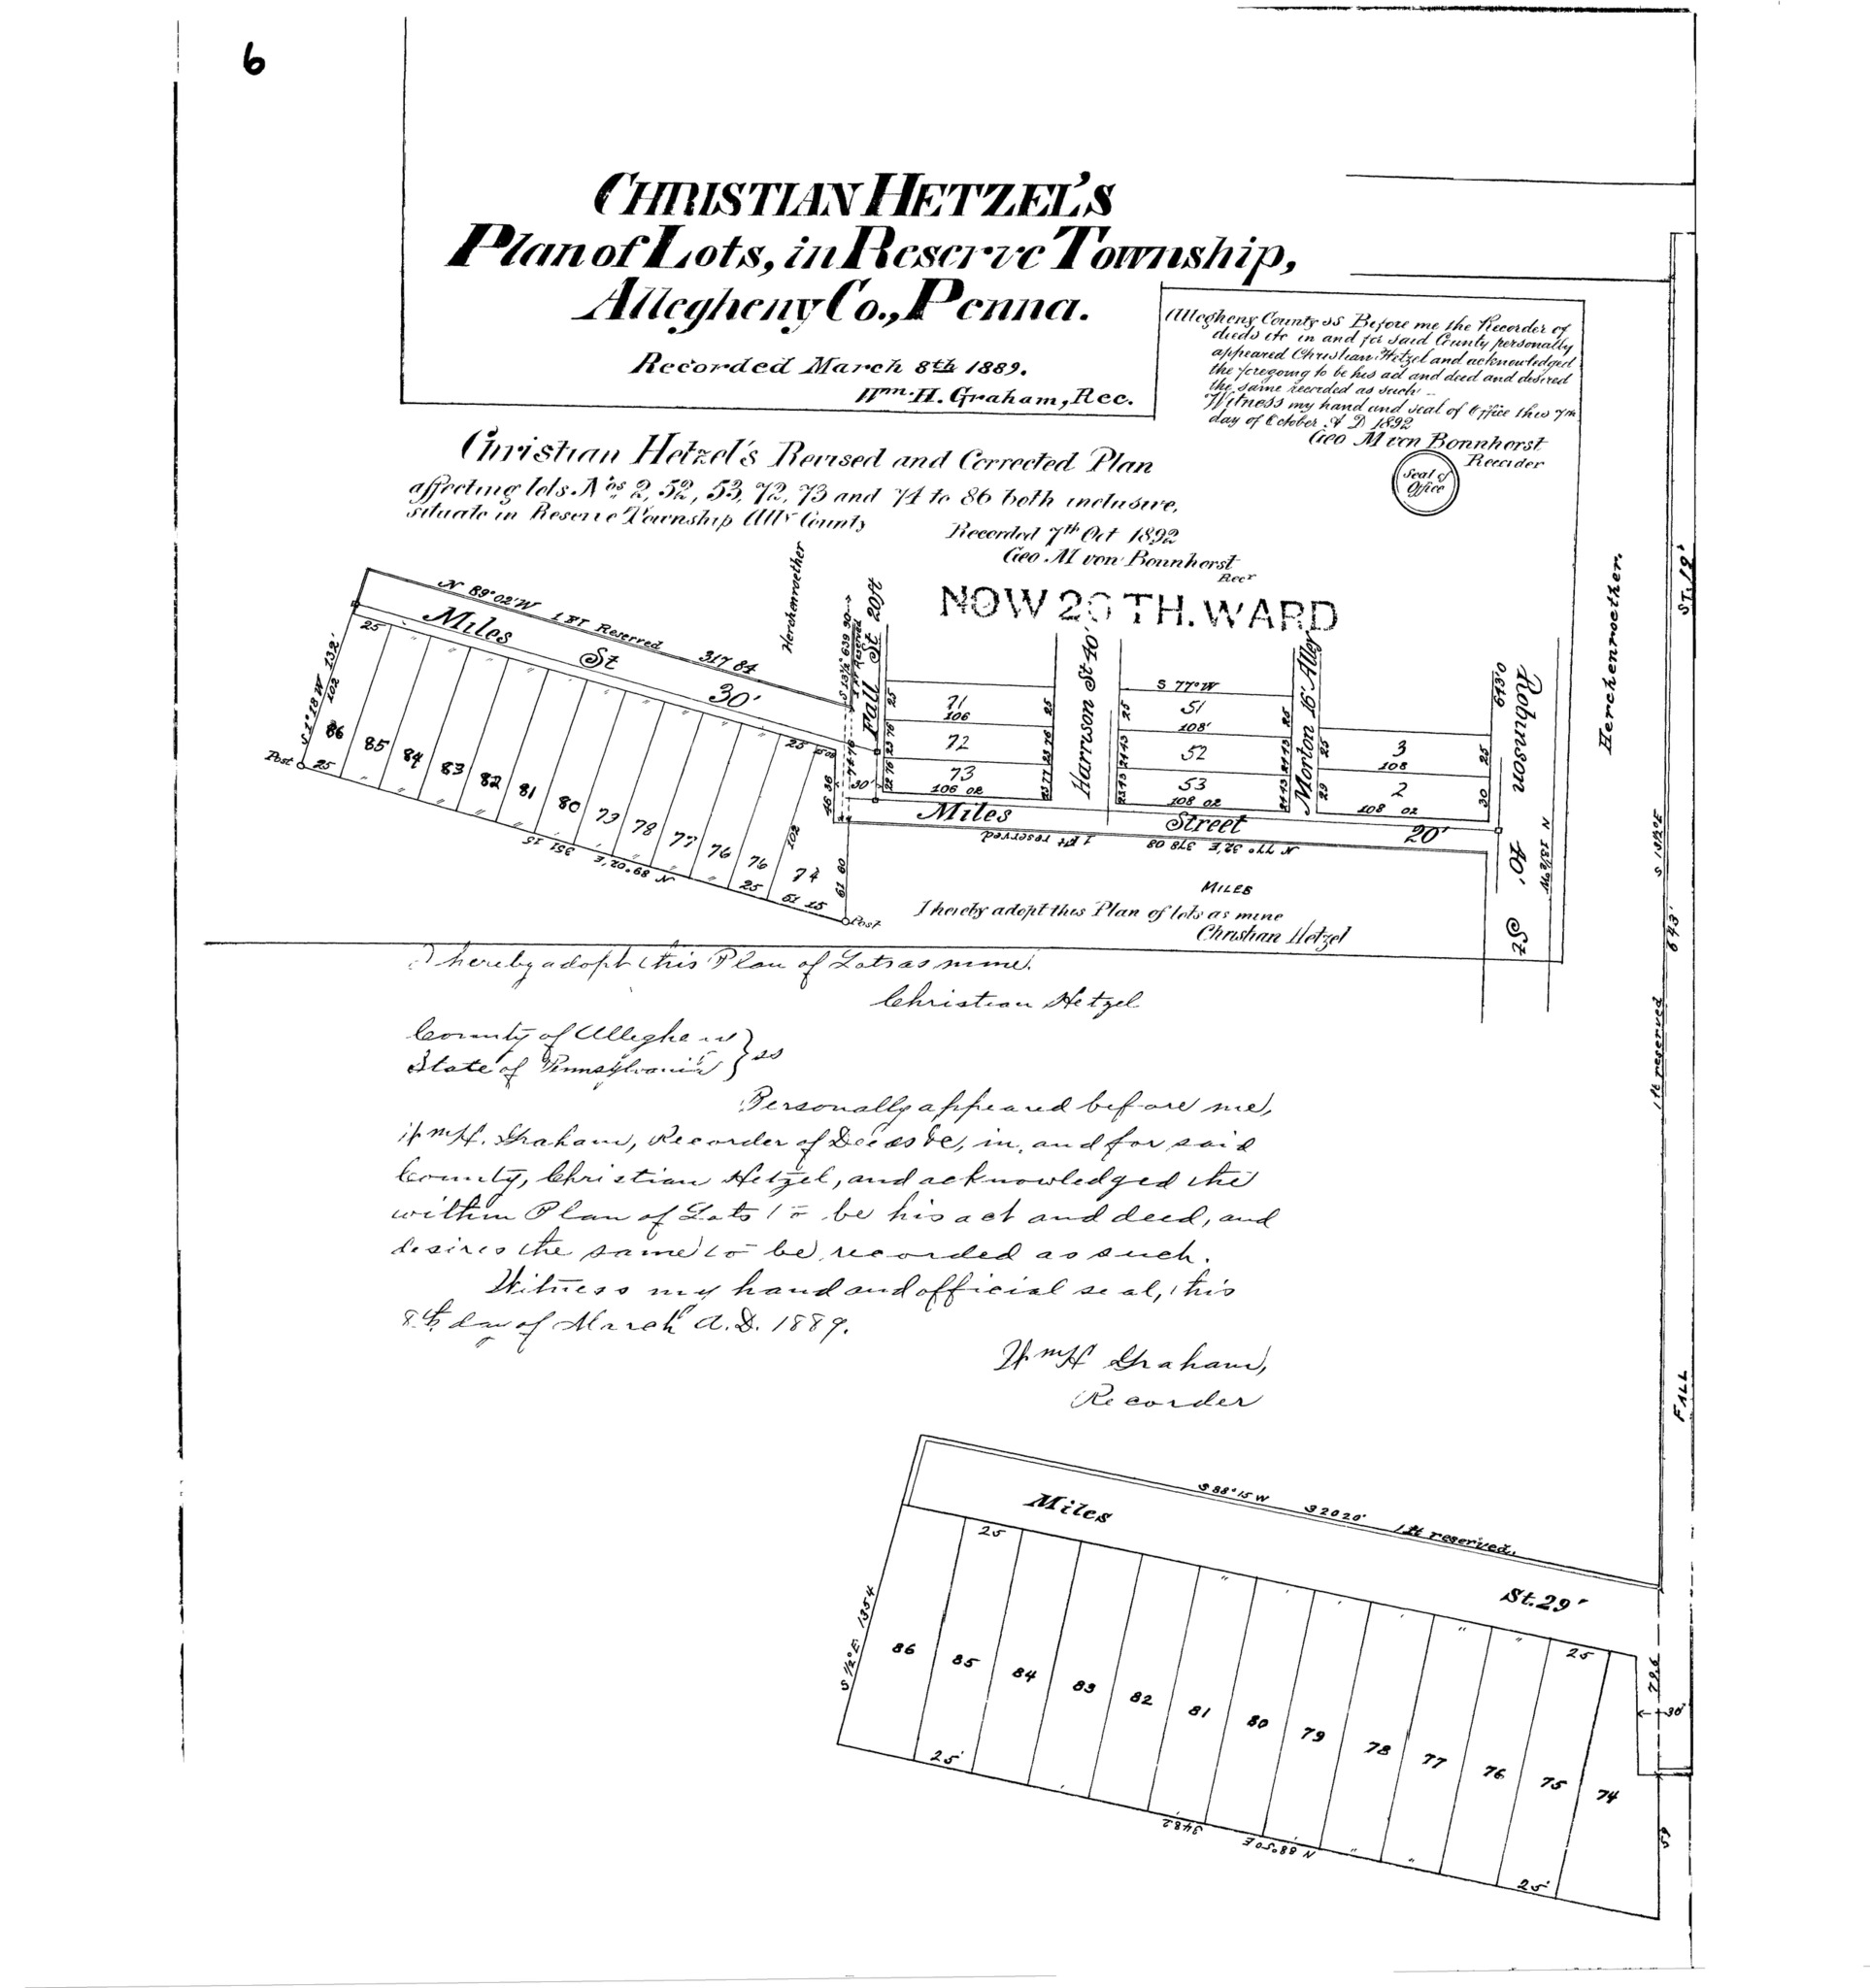 6
CHRISTIAN HETZEL'S
Plan of Lots, in Reserve Township,
Allegheny Co., Penna.
Recorded March 8th 1889.
Wm. H. Graham, Rec.
Allegheny County ss Before me the Recorder of
deeds etc in and for said County personally
appeared Christian Hetzel and acknowledged
the foregoing to be his act and deed and desired
the same recorded as such
Witness my hand and seal of Office this 7th
day of October A D 1892
Geo M von Bonnhorst
Recorder
Seal of
Office
Christian Hetzel's Revised and Corrected Plan
affecting lots Nos 2, 52, 53, 72, 73 and 74 to 86 both inclusive,
situate in Reserve Township Ally County
Recorded 7th Oct 1892
Geo M von Bonnhorst
Recr
NOW 26 TH. WARD
Herchenroether
Herchenroether.
N 89°02'W 1 FT Reserved 317 84
Miles St 30'
S 1°18 W 132'
102
25
86 85 84 83 82 81 80 79 78 77 76 76 74
Post
25
N 89°02'E 351 15
25 61 15
102
Post
46 36
61 80
25 25 08
S 13½° 639 90
1 Ft Reserved
74 76
30'
Fall St 20ft
71
106
72
73
106 02
25
23 76
22 76
25
Harrison St 40'
S 77° W
51
108'
52
53
108 02
25
24 43
25
24 43
Morton 16' Alley
3
108
2
108 02
25
29
25
30
Miles Street 20'
1 Ft reserved N 77° 32'E 378 08
643'0
Robinson 40' St
N 13½° W
MILES
I hereby adopt this Plan of lots as mine
Christian Hetzel
I hereby adopt this Plan of Lots as mine.
Christian Hetzel
County of Allegheny
State of Pennsylvania } ss
Personally appeared before me,
Wm H. Graham, Recorder of Deeds &c, in, and for said
County, Christian Hetzel, and acknowledged the
within Plan of Lots to be his act and deed, and
desires the same to be recorded as such.
Witness my hand and official seal, this
8th day of March A.D. 1889.
Wm H Graham,
Recorder
ST. 19'
S 13½° E
643'
1 ft reserved
FALL
S 88° 15 W 32020' 1 ft reserved.
Miles St. 29'
S ½° E 1354
25 25
86 85 84 83 82 81 80 79 78 77 76 75 74
25' 25'
3482 N 88° 50 E
79.6
30'
59